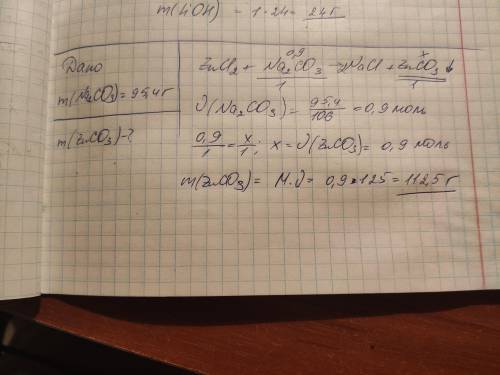 m(LiOH) = 1·24 = 24г
Дано
m(Na₂CO₃) = 95,4г
m(ZnCO₃) - ?
0,9 x
ZnCl₂ + Na₂CO₃ → 2NaCl + ZnCO₃↓
1 1
ν(Na₂CO₃) = 95,4/106 = 0,9 моль
0,9/1 = x/1; x = ν(ZnCO₃) = 0,9 моль
m(ZnCO₃) = M·ν = 0,9·125 = 112,5 г